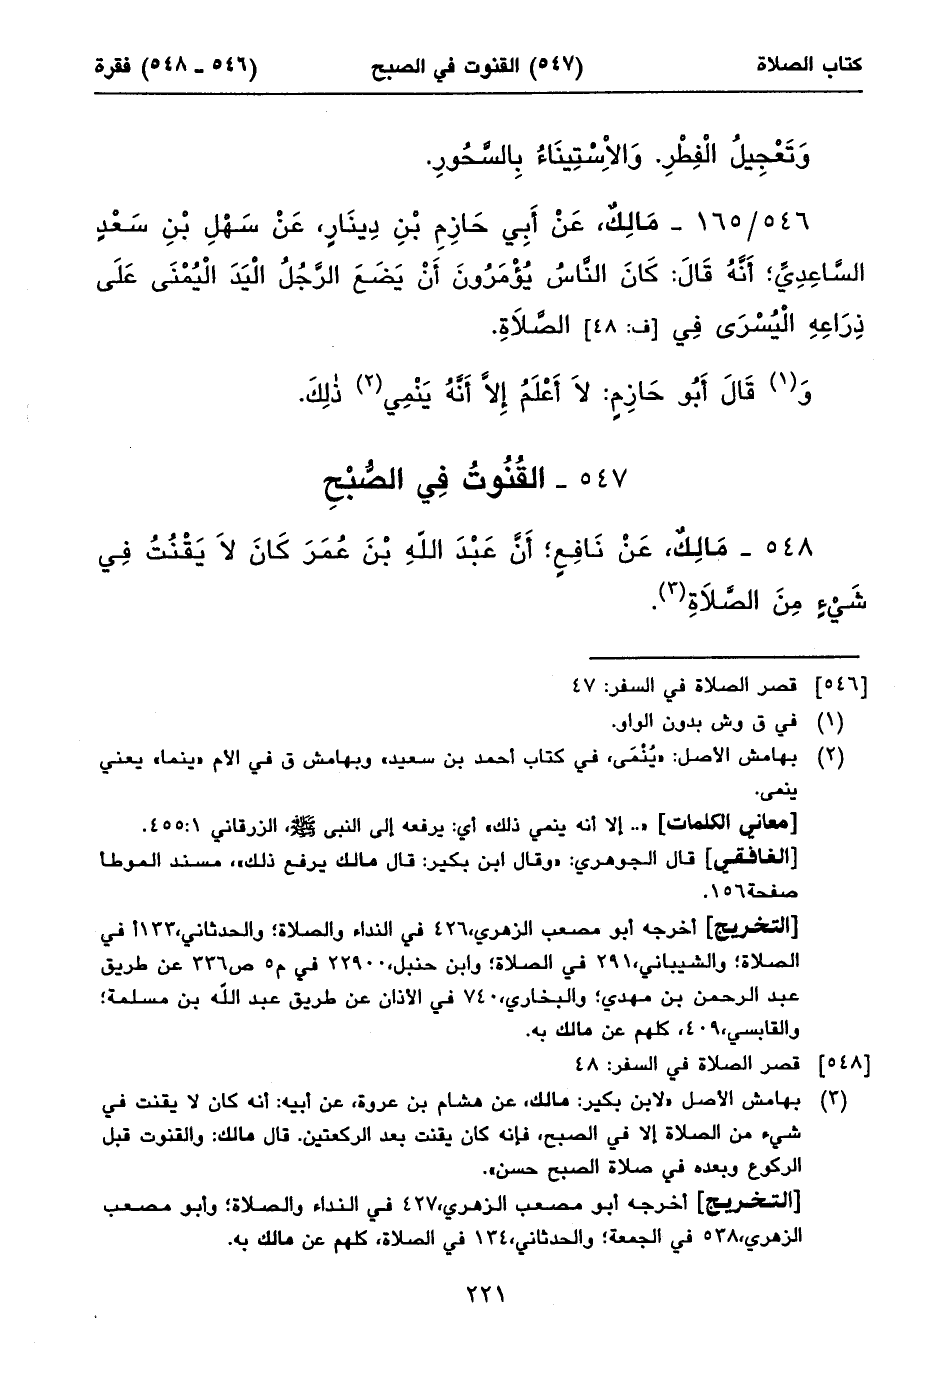 كتاب الصلاة (٥٤٧) القنوت في الصبح (٥٤٦ ـ ٥٤٨) فقرة
وَتَعْجِيلُ الْفِطْرِ. وَالاْسْتِينَاءُ بِالسَّحُورِ.
١٦٥/٥٤٦ ـ مَالِكٌ، عَنْ أَبِي حَازِمِ بْنِ دِينَارٍ، عَنْ سَهْلِ بْنِ سَعْدٍ
السَّاعِدِيِّ؛ أَنَّهُ قَالَ: كَانَ النَّاسُ يُؤْمَرُونَ أَنْ يَضَعَ الرَّجُلُ الْيَدَ الْيُمْنَى عَلَى
ذِرَاعِهِ الْيُسْرَى فِي [ف: ٤٨] الصَّلاَةِ.
وَ(١) قَالَ أَبُو حَازِمٍ: لاَ أَعْلَمُ إِلاَّ أَنَّهُ يَنْمِي(٢) ذٰلِكَ.
٥٤٧ ـ القُنُوتُ فِي الصُّبْحِ
٥٤٨ ـ مَالِكٌ، عَنْ نَافِعٍ؛ أَنَّ عَبْدَ اللّهِ بْنَ عُمَرَ كَانَ لاَ يَقْنُتُ فِي
شَيْءٍ مِنَ الصَّلاَةِ(٣).
[٥٤٦] قصر الصلاة في السفر: ٤٧
(١) في ق وش بدون الواو.
(٢) بهامش الأصل: «يُنْمَى، في كتاب أحمد بن سعيد» وبهامش ق في الأم «ينما» يعني
ينمى.
[معاني الكلمات] «.. إلا أنه ينمي ذلك» أي: يرفعه إلى النبي ﷺ، الزرقاني ٤٥٥:١.
[الغافقي] قال الجوهري: «وقال ابن بكير: قال مالك يرفع ذلك»، مسند الموطأ
صفحة١٥٦.
[التخريج] أخرجه أبو مصعب الزهري،٤٢٦ في النداء والصلاة؛ والحدثاني،١٣٣أ في
الصلاة؛ والشيباني،٢٩١ في الصلاة؛ وابن حنبل،٢٢٩٠٠ في م٥ ص٣٣٦ عن طريق
عبد الرحمن بن مهدي؛ والبخاري،٧٤٠ في الأذان عن طريق عبد اللّه بن مسلمة؛
والقابسي،٤٠٩، كلهم عن مالك به.
[٥٤٨] قصر الصلاة في السفر: ٤٨
(٣) بهامش الأصل «لابن بكير: مالك، عن هشام بن عروة، عن أبيه: أنه كان لا يقنت في
شيء من الصلاة إلا في الصبح، فإنه كان يقنت بعد الركعتين. قال مالك: والقنوت قبل
الركوع وبعده في صلاة الصبح حسن».
[التخريج] أخرجه أبو مصعب الزهري،٤٢٧ في النداء والصلاة؛ وأبو مصعب
الزهري،٥٣٨ في الجمعة؛ والحدثاني،١٣٤ في الصلاة، كلهم عن مالك به.
٢٢١